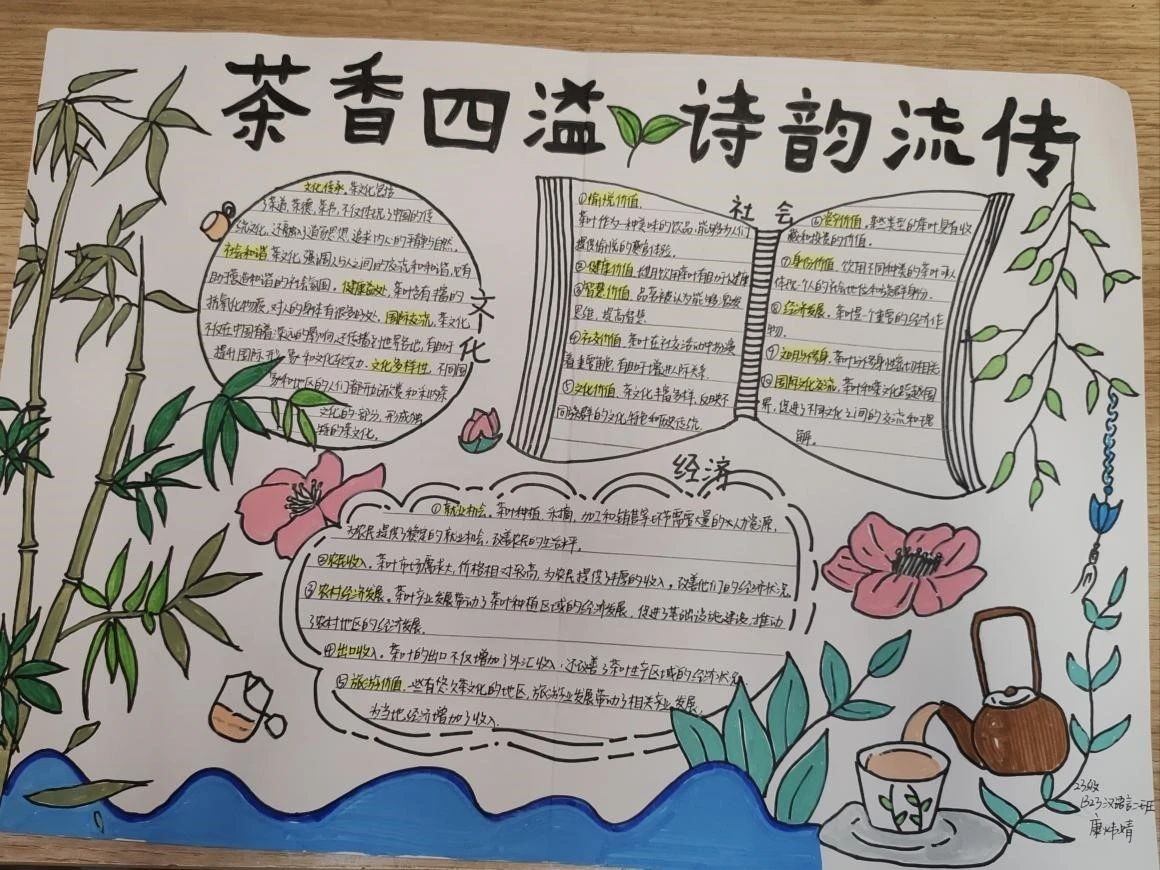 茶香四溢 诗韵流传
文化
文化传承，茶文化包括
了茶道、茶德、茶书，不仅体现了中国的传
统文化，还融入了道家思想，追求内心的平静与自然。
社会和谐 茶文化强调人与人之间的交流和和谐，它有
助于营造和谐的社会氛围，健康益处，茶叶含有丰富的
抗氧化物质，对人的身体有很多好处，国际交流，茶文化
不仅在中国有着深远的影响，还传播到世界各地，有助于
提升国际 易和文化软实力，文化多样性，不同国
家和地区的人们都开始欣赏和采纳茶
文化的一部分，形成独
特的茶文化。
社会
①愉悦价值，
茶叶作为一种美味的饮品，能够为人们
提供愉悦的感官体验。
②健康价值，适用饮用茶叶有助于健康
③智慧价值，品茗被认为能够激发
思维，提高智慧
④社交价值，茶叶在社交活动中扮演
着重要角色，有助于增进人际关系。
⑤文化价值，茶文化丰富多样，反映不
同族群的文化特色和历史传统。
⑥资金价值，某些类型的茶叶具有收
藏和投资的价值。
⑦身份价值，饮用不同种类的茶叶
体现个人的社会地位和族群身份。
⑧经济发展，茶叶是一个重要的经济作
物。
⑩国际文化交流，茶叶和茶文化跨越国
界，促进了不同文化之间的交流和理
解。
经济
①就业机会，茶叶种植、采摘、加工和销售等环节需要大量的人力资源，
为农民提供了稳定的就业机会，改善农民的生活水平。
②农民收入，茶叶市场需求大，价格相对较高，为农民提供了丰厚的收入，改善他们的经济状况
③农村经济发展，茶叶产业发展带动了茶叶种植区域的经济发展，促进了基础设施建设，推动
了农村地区的经济发展。
④出口收入，茶叶的出口不仅增加了外汇收入，还改善了茶叶生产区域的经济状况
⑤旅游价值，一些有悠久茶文化的地区，旅游业发展带动了相关产业发展，
为当地经济增加了收入。
23级
B23汉语言二班
康 婧